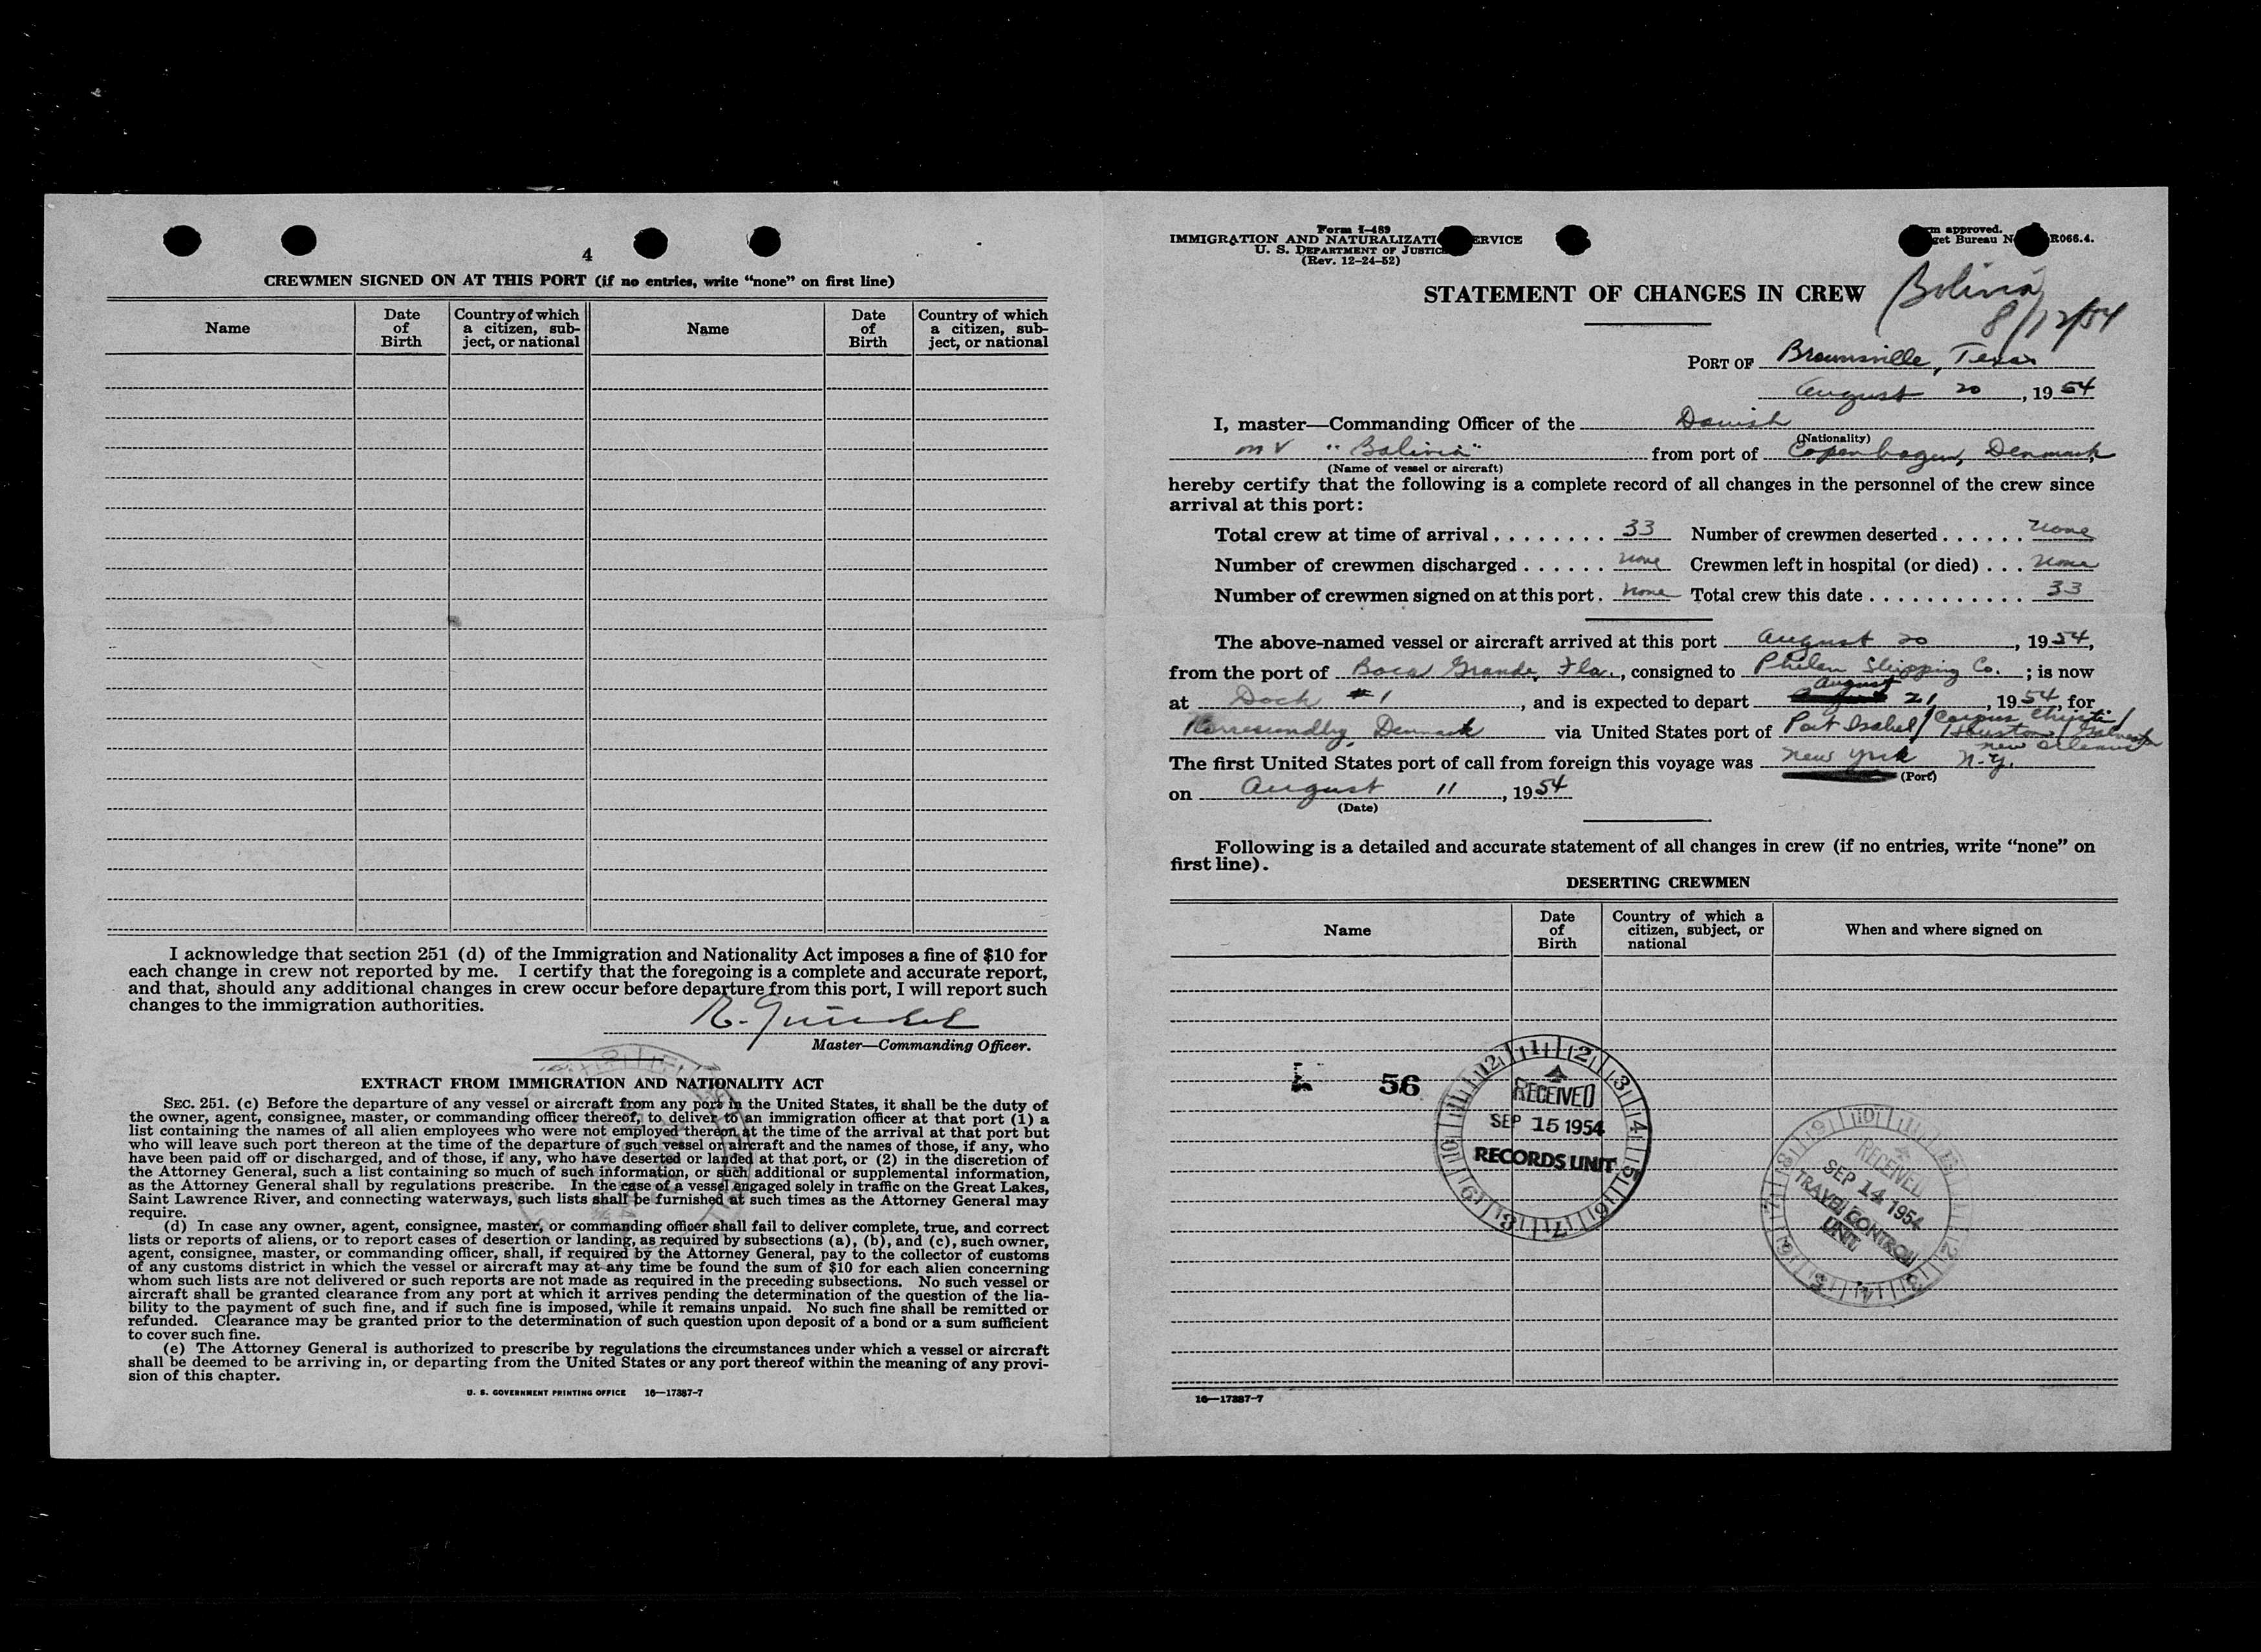 4
CREWMEN SIGNED ON AT THIS PORT (if no entries, write “none” on first line)
Name
Date of Birth
Country of which a citizen, sub-ject, or national
Name
Date of Birth
Country of which a citizen, sub-ject, or national
I acknowledge that section 251 (d) of the Immigration and Nationality Act imposes a fine of $10 for
each change in crew not reported by me. I certify that the foregoing is a complete and accurate report,
and that, should any additional changes in crew occur before departure from this port, I will report such
changes to the immigration authorities.
Master—Commanding Officer.
EXTRACT FROM IMMIGRATION AND NATIONALITY ACT
SEC. 251. (c) Before the departure of any vessel or aircraft from any port in the United States, it shall be the duty of
the owner, agent, consignee, master, or commanding officer thereof, to deliver to an immigration officer at that port (1) a
list containing the names of all alien employees who were not employed thereon at the time of the arrival at that port but
who will leave such port thereon at the time of the departure of such vessel or aircraft and the names of those, if any, who
have been paid off or discharged, and of those, if any, who have deserted or landed at that port, or (2) in the discretion of
the Attorney General, such a list containing so much of such information, or such additional or supplemental information,
as the Attorney General shall by regulations prescribe. In the case of a vessel engaged solely in traffic on the Great Lakes,
Saint Lawrence River, and connecting waterways, such lists shall be furnished at such times as the Attorney General may
require.
(d) In case any owner, agent, consignee, master, or commanding officer shall fail to deliver complete, true, and correct
lists or reports of aliens, or to report cases of desertion or landing, as required by subsections (a), (b), and (c), such owner,
agent, consignee, master, or commanding officer, shall, if required by the Attorney General, pay to the collector of customs
of any customs district in which the vessel or aircraft may at any time be found the sum of $10 for each alien concerning
whom such lists are not delivered or such reports are not made as required in the preceding subsections. No such vessel or
aircraft shall be granted clearance from any port at which it arrives pending the determination of the question of the lia-
bility to the payment of such fine, and if such fine is imposed, while it remains unpaid. No such fine shall be remitted or
refunded. Clearance may be granted prior to the determination of such question upon deposit of a bond or a sum sufficient
to cover such fine.
(e) The Attorney General is authorized to prescribe by regulations the circumstances under which a vessel or aircraft
shall be deemed to be arriving in, or departing from the United States or any port thereof within the meaning of any provi-
sion of this chapter.
U. S. GOVERNMENT PRINTING OFFICE 16—17387-7
Form I-489
IMMIGRATION AND NATURALIZATI ERVICE
U. S. DEPARTMENT OF JUSTIC
(Rev. 12-24-52)
m approved.
get Bureau N R066.4.
STATEMENT OF CHANGES IN CREW
Bolivia
8/12/54
PORT OF Brownsville, Texas
August 20, 1954
I, master—Commanding Officer of the Danish
(Nationality)
MV "Bolivia" from port of Copenhagen, Denmark,
(Name of vessel or aircraft)
hereby certify that the following is a complete record of all changes in the personnel of the crew since
arrival at this port:
Total crew at time of arrival ........ 33 Number of crewmen deserted ...... None
Number of crewmen discharged ...... None Crewmen left in hospital (or died) ... None
Number of crewmen signed on at this port . None Total crew this date ............ 33
The above-named vessel or aircraft arrived at this port August 20, 1954,
from the port of Boca Grande, Fla., consigned to Philen Shipping Co.; is now
at Dock #1, and is expected to depart August 21, 1954, for
Denmark via United States port of Port Isabel / Corpus Christi / Houston / Galveston
New Orleans
The first United States port of call from foreign this voyage was New York N.Y.
(Port)
on August 11, 1954
(Date)
Following is a detailed and accurate statement of all changes in crew (if no entries, write “none” on
first line).
DESERTING CREWMEN
Name
Date of Birth
Country of which a citizen, subject, or national
When and where signed on
56
RECEIVED
SEP 15 1954
RECORDS UNIT
RECEIVED
SEP 14 1954
TRAVEL CONTROL
UNIT
16—17387-7